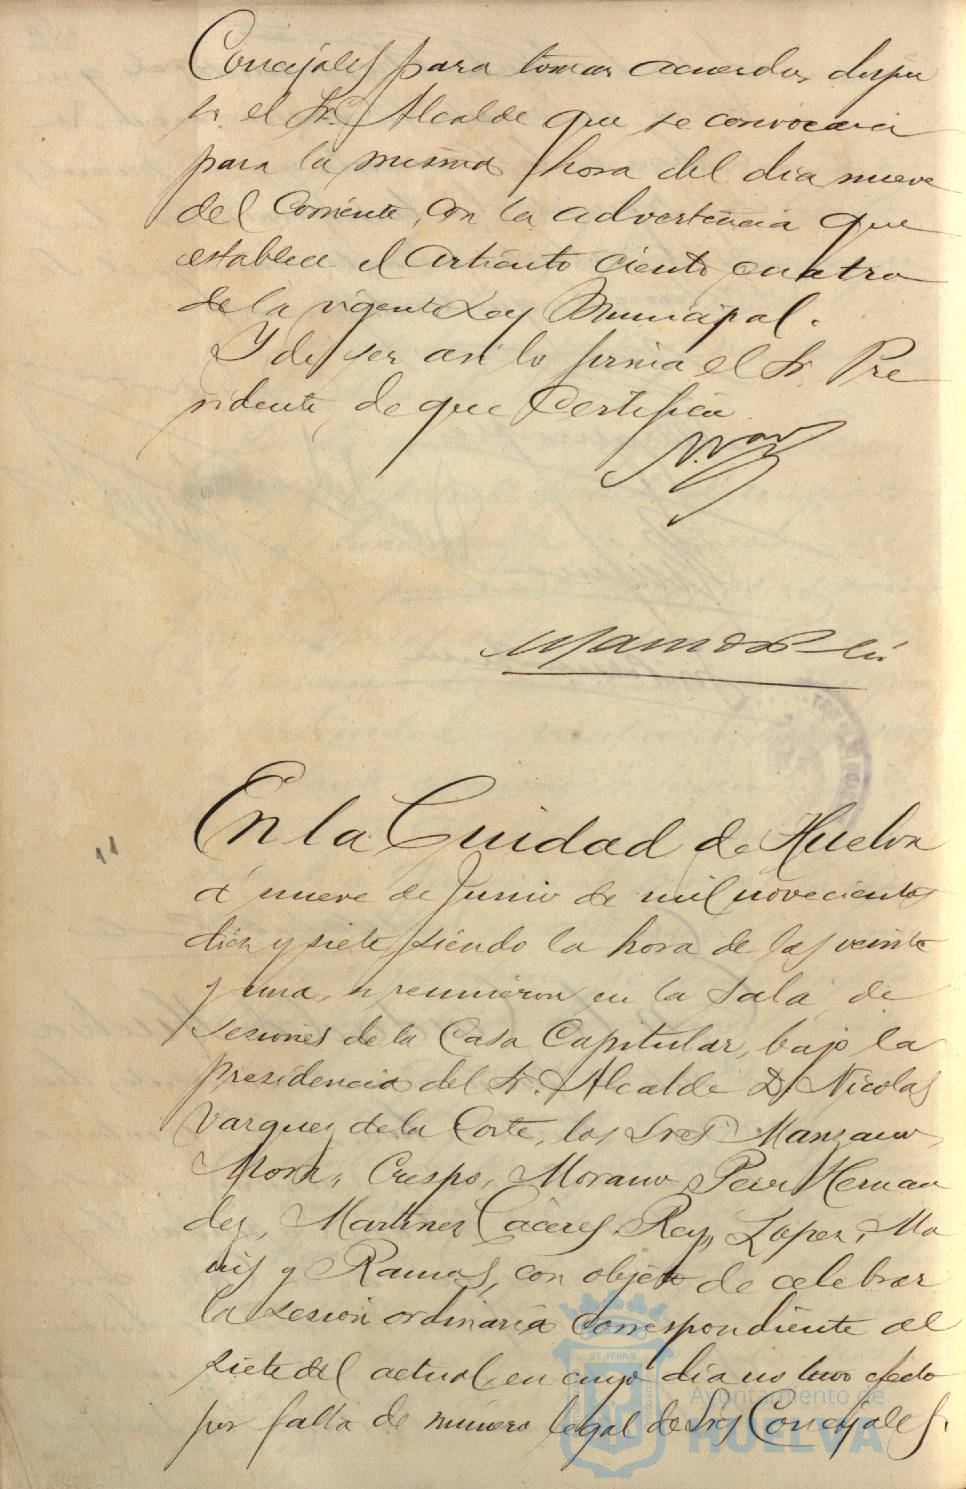 Concejales para tomar acuerdos, dispu
so el Sr. Alcalde que se convocara
para la misma hora del dia nueve
del corriente, con la advertencia que
establece el articulo ciento cuatro
de la vigente Ley Municipal.
Y de ser asi lo firma el Sr. Pre
sidente, de que Certifico.
En la Cuidad de Huelva
á nueve de Junio de mil novecientos
diez y siete, siendo la hora de las veinte
y una, se reunieron en la Sala de
Sesiones de la Casa Capitular, bajo la
presidencia del Sr. Alcalde D. Nicolas
Vazquez de la Corte, los Sres. Manzano,
Mora, Crespo, Morano, Perez Hernan
dez, Martinez Cáceres, Rey, Lopez,
y Ramos, con objeto de celebrar
la sesion ordinaria correspondiente al
siete del actual, en cuyo dia no tuvo efecto
por falta de número legal de Sres Concejales.
Ayuntamiento de
HUELVA